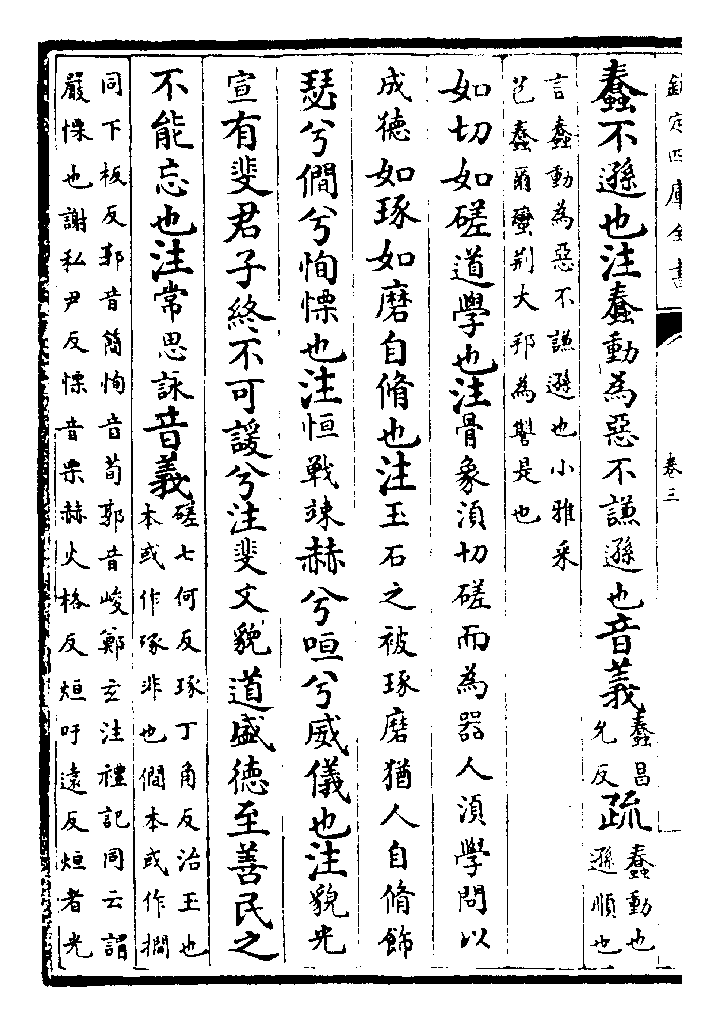 欽定四庫全書
卷三
蠢不遜也注蠢動為惡不謙遜也音義蠢昌允反疏蠢動也遜順也
言蠢動為惡不謙遜也小雅采
芑蠢爾蠻荆大邦為讐是也
如切如磋道學也注骨象湏切磋而為器人湏學問以
成德如琢如磨自脩也注玉石之被琢磨猶人自脩飾
瑟兮僩兮恂慄也注恒戰竦赫兮咺兮威儀也注貌光
宣有斐君子終不可諼兮注斐文貌道盛德至善民之
不能忘也注常思詠音義磋七何反琢丁角反治玉也本或作琢非也僩本或作撊
同下板反郭音簡恂音荀郭音峻鄭玄注禮記同云謂
嚴慄也謝私尹反慄音栗赫火格反烜吁遠反烜者光